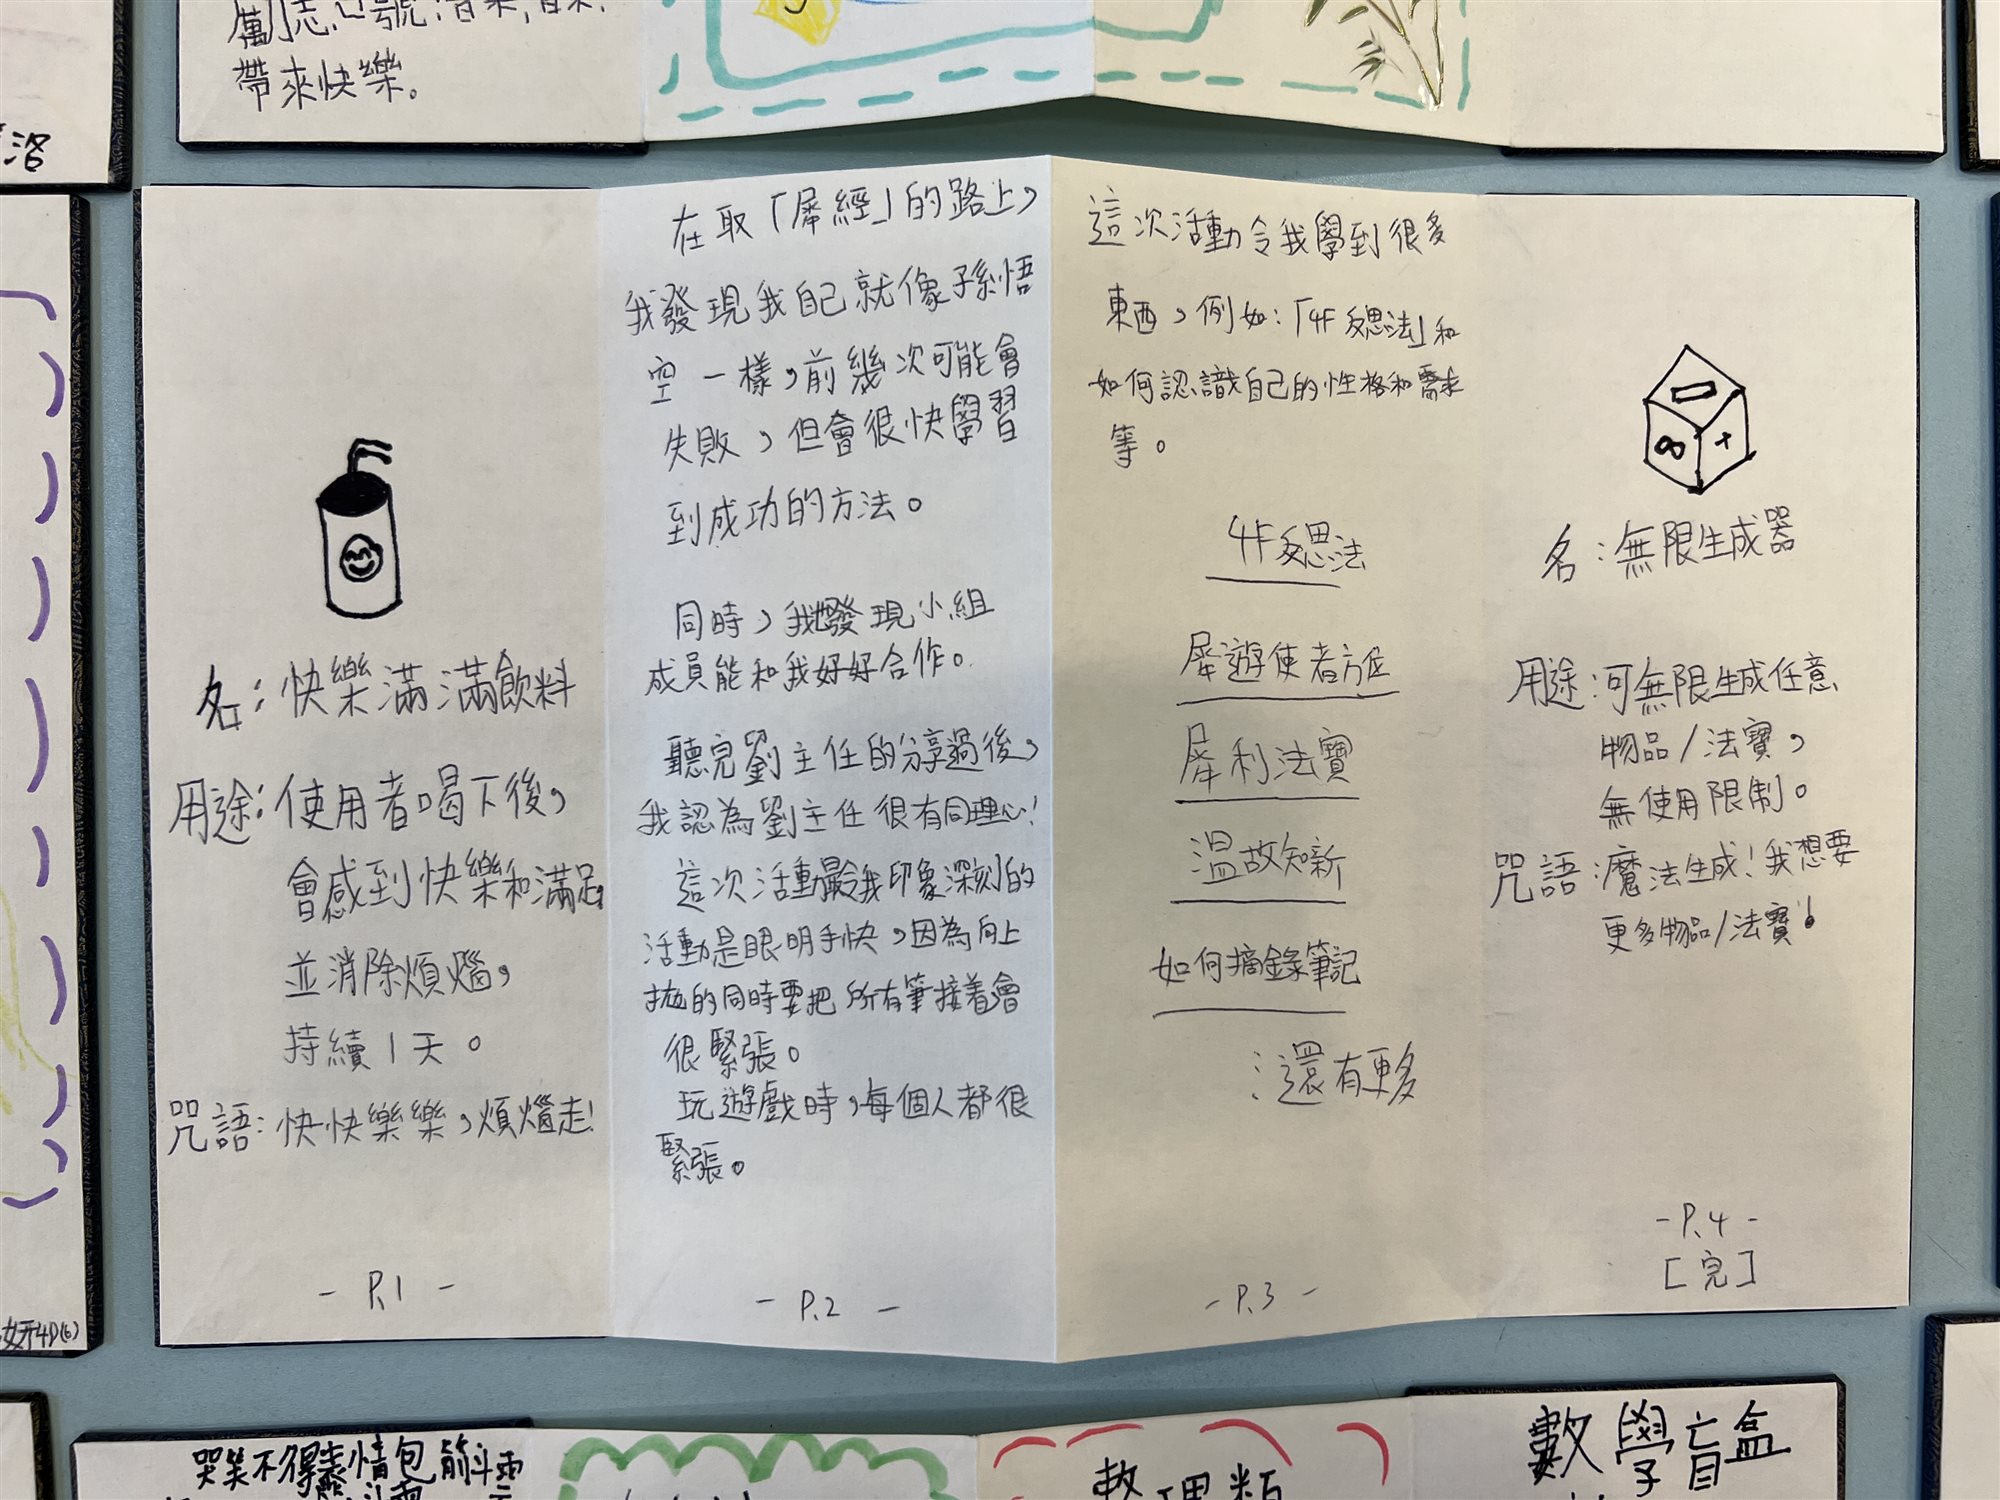 厲志口號:音樂,音樂,
帶來快樂。
洛
名:快樂滿滿飲料
用途:使用者喝下後,
會感到快樂和滿足,
並消除煩惱,
持續1天。
咒語:快快樂樂,煩惱走!
- P.1 -
在取「犀經」的路上,
我發現我自己就像孫悟
空一樣,前幾次可能會
失敗,但會很快學習
到成功的方法。
同時,我也發現小組
成員能和我好好合作。
聽完劉主任的分享過後,
我認為劉主任很有同理心!
這次活動最令我印象深刻的
活動是眼明手快,因為向上
拋的同時要把所有筆接着會
很緊張。
玩遊戲時,每個人都很
緊張。
- P.2 -
這次活動令我學到很多
東西,例如:「4F反思法」和
如何認識自己的性格和需求
等。
4F反思法
犀遊使者方位
犀利法寶
溫故知新
如何摘錄筆記
:還有更多
- P.3 -
名:無限生成器
用途:可無限生成任意
物品/法寶,
無使用限制。
咒語:魔法生成!我想要
更多物品/法寶!
- P.4 -
[完]
4D(6)
哭笑不得表情包
整理類
數學盲盒